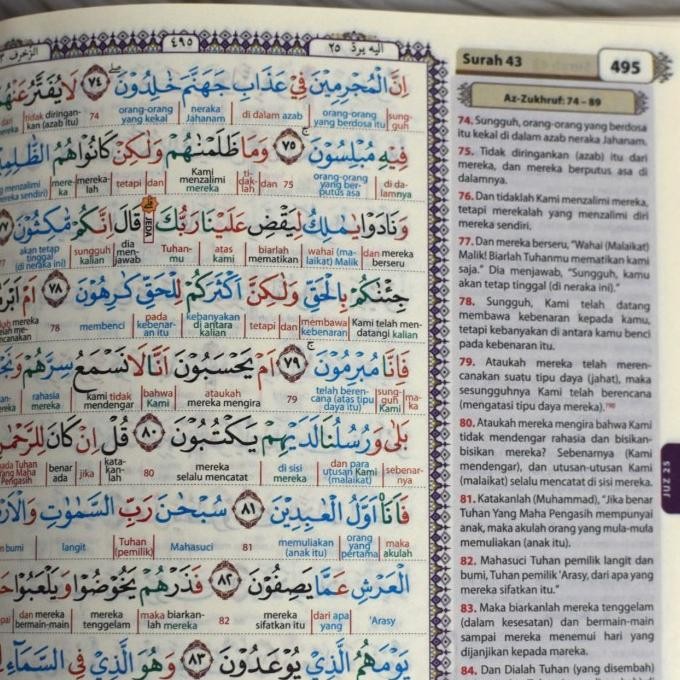 الزخرف
٤٩٥
اليه يرد ٢٥
اِنَّ الْمُجْرِمِيْنَ فِيْ عَذَابِ جَهَنَّمَ خٰلِدُوْنَ ۖ ٧٤ لَا يُفَتَّرُ عَنْهُمْ
sung-guh
orang-orang yang berdosa itu
di dalam azab
neraka Jahanam
orang-orang yang kekal
74
tidak diringan-kan (azab itu)
dari mereka
فِيْهِ مُبْلِسُوْنَ ۚ ٧٥ وَمَا ظَلَمْنٰهُمْ وَلٰكِنْ كَانُوْا هُمُ
di da-lamnya
orang-orang yang ber-putus asa
75
dan
ti-dak-lah
Kami menzalimi mereka
tetapi
dan
mereka-lah
mere-ka
وَنَادَوْا يٰمٰلِكُ لِيَقْضِ عَلَيْنَا رَبُّكَ ۗ قَالَ اِنَّكُمْ مّٰكِثُوْنَ
JEDA
dan mereka berseru
wahai (ma-laikat) Malik
biarlah mematikan
atas kami
Tuhan-mu
dia men-jawab
sungguh kalian
akan tetap tinggal (di neraka ini)
جِئْنٰكُمْ بِالْحَقِّ وَلٰكِنَّ اَكْثَرَكُمْ لِلْحَقِّ كٰرِهُوْنَ ٧٨ اَمْ
Kami telah men-datangi kalian
membawa kebenaran
dan
tetapi
kebanyakan di antara kalian
pada kebenar-an itu
membenci
78
فَاِنَّا مُبْرِمُوْنَ ۚ ٧٩ اَمْ يَحْسَبُوْنَ اَنَّا لَا نَسْمَعُ سِرَّهُمْ
ma-ka
sung-guh Kami
telah beren-cana (atas tipu daya itu)
79
ataukah mereka mengira
bahwa Kami
kami tidak mendengar
rahasia mereka
بَلٰى وَرُسُلُنَا لَدَيْهِمْ يَكْتُبُوْنَ ٨٠ قُلْ اِنْ كَانَ لِلرَّحْمٰنِ
sebenar-nya
dan para utusan Kami (malaikat)
di sisi mereka
mereka selalu mencatat
80
kata-kan-lah
jika
benar ada
فَاَنَا۠ اَوَّلُ الْعٰبِدِيْنَ ٨١ سُبْحٰنَ رَبِّ السَّمٰوٰتِ
maka akulah
orang yang pertama
memuliakan (anak itu)
81
Mahasuci
Tuhan (pemilik)
langit
bumi
الْعَرْشِ عَمَّا يَصِفُوْنَ ٨٢ فَذَرْهُمْ يَخُوْضُوْا وَيَلْعَبُوْا
'Arasy
dari apa yang
mereka sifatkan itu
82
maka biarkan-lah mereka
mereka tenggelam
dan mereka bermain-main
يَوْمَهُمُ الَّذِيْ يُوْعَدُوْنَ ٨٣ وَهُوَ الَّذِيْ فِى السَّمَاۤءِ
Surah 43
495
Az-Zukhruf: 74 – 89
74. Sungguh, orang-orang yang berdosa
itu kekal di dalam azab neraka Jahanam.
75. Tidak diringankan (azab) itu dari
mereka, dan mereka berputus asa di
dalamnya.
76. Dan tidaklah Kami menzalimi mereka,
tetapi merekalah yang menzalimi diri
mereka sendiri.
77. Dan mereka berseru, "Wahai (Malaikat)
Malik! Biarlah Tuhanmu mematikan kami
saja." Dia menjawab, "Sungguh, kamu
akan tetap tinggal (di neraka ini)."
78. Sungguh, Kami telah datang
membawa kebenaran kepada kamu,
tetapi kebanyakan di antara kamu benci
pada kebenaran itu.
79. Ataukah mereka telah meren-
canakan suatu tipu daya (jahat), maka
sesungguhnya Kami telah berencana
(mengatasi tipu daya mereka).
80. Ataukah mereka mengira bahwa Kami
tidak mendengar rahasia dan bisikan-
bisikan mereka? Sebenarnya (Kami
mendengar), dan utusan-utusan Kami
(malaikat) selalu mencatat di sisi mereka.
81. Katakanlah (Muhammad), "Jika benar
Tuhan Yang Maha Pengasih mempunyai
anak, maka akulah orang yang mula-mula
memuliakan (anak itu).
82. Mahasuci Tuhan pemilik langit dan
bumi, Tuhan pemilik 'Arasy, dari apa yang
mereka sifatkan itu."
83. Maka biarkanlah mereka tenggelam
(dalam kesesatan) dan bermain-main
sampai mereka menemui hari yang
dijanjikan kepada mareka.
84. Dan Dialah Tuhan (yang disembah)
JUZ 25